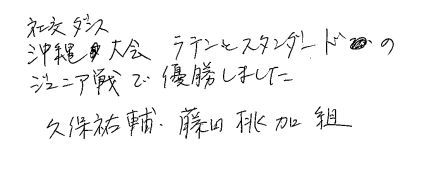 社交ダンス
沖縄大会 ラテンとスタンダードの
ジュニア戦で優勝しました
久保祐輔・藤田桃加組